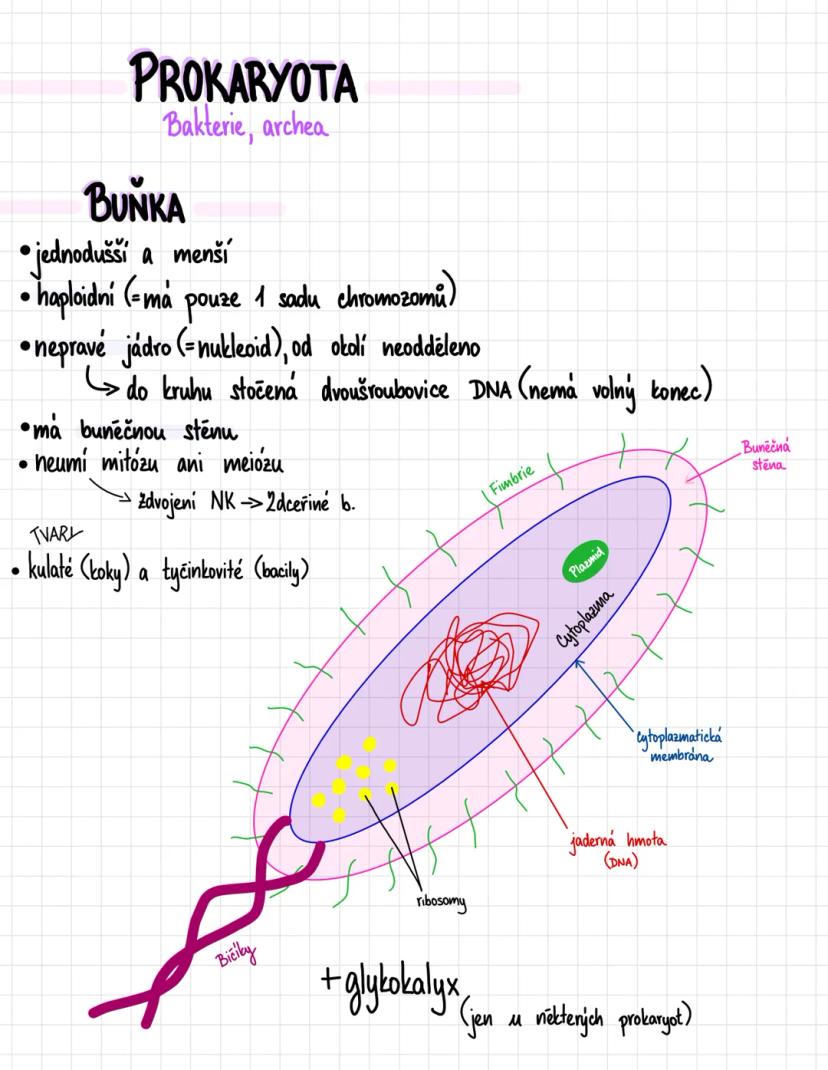 PROKARYOTA
Bakterie, archea
BUŇKA
• jednodušší a menší
• haploidní (=má pouze 1 sadu chromozomů)
• nepravé jádro (=nukleoid), od okolí neodděleno
↳ do kruhu stočená dvoušroubovice DNA (nemá volný konec)
• má buněčnou stěnu
• neumí mitózu ani meiózu
→ zdvojení NK → 2dceřiné b.
TVARY
• kulaté (koky) a tyčinkovité (bacily)
Buněčná
stěna
Fimbrie
Plazmid
Cytoplazma
cytoplazmatická
membrána
jaderná hmota
(DNA)
ribosomy
Bičíky
+ glykokalyx
(jen u některých prokaryot)